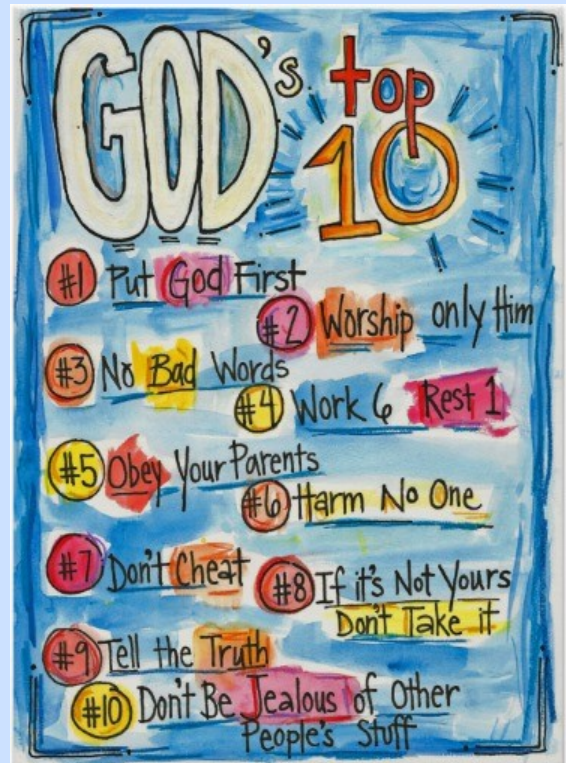 GOD's top
10
#1 Put God First
#2 Worship only Him
#3 No Bad Words
#4 Work 6 Rest 1
#5 Obey Your Parents
#6 Harm No One
#7 Don't Cheat
#8 If it's Not Yours
Don't Take it
#9 Tell the Truth
#10 Don't Be Jealous of Other
People's Stuff